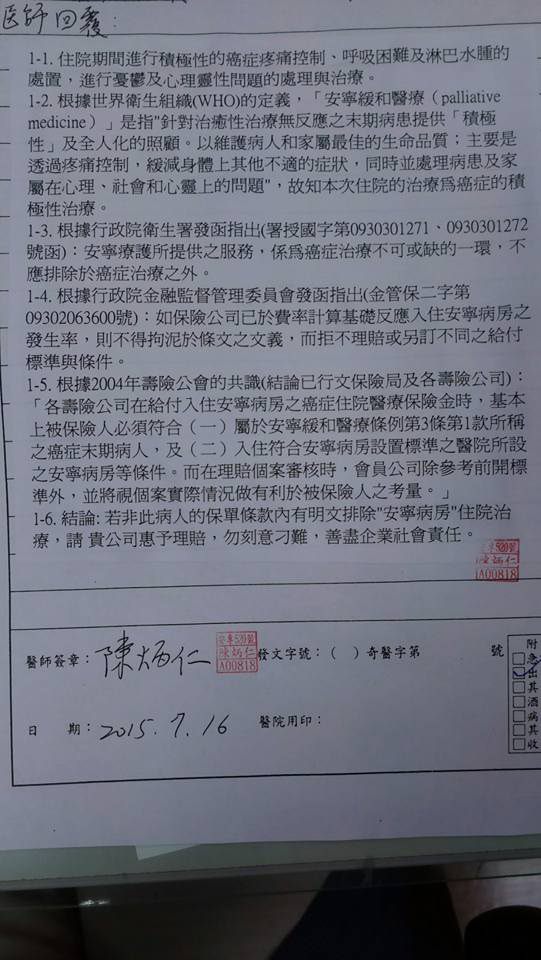 医師回覆
1-1. 住院期間進行積極性的癌症疼痛控制、呼吸困難及淋巴水腫的
處置，進行憂鬱及心理靈性問題的處理與治療。
1-2. 根據世界衛生組織(WHO)的定義，「安寧緩和醫療（palliative
medicine）」是指"針對治癒性治療無反應之末期病患提供「積極
性」及全人化的照顧。以維護病人和家屬最佳的生命品質；主要是
透過疼痛控制，緩減身體上其他不適的症狀，同時並處理病患及家
屬在心理、社會和心靈上的問題"，故知本次住院的治療爲癌症的積
極性治療。
1-3. 根據行政院衛生署發函指出(署授國字第0930301271、0930301272
號函)：安寧療護所提供之服務，係爲癌症治療不可或缺的一環，不
應排除於癌症治療之外。
1-4. 根據行政院金融監督管理委員會發函指出(金管保二字第
09302063600號)：如保險公司已於費率計算基礎反應入住安寧病房之
發生率，則不得拘泥於條文之文義，而拒不理賠或另訂不同之給付
標準與條件。
1-5. 根據2004年壽險公會的共識(結論已行文保險局及各壽險公司)：
「各壽險公司在給付入住安寧病房之癌症住院醫療保險金時，基本
上被保險人必須符合（一）屬於安寧緩和醫療條例第3條第1款所稱
之癌症末期病人，及（二）入住符合安寧病房設置標準之醫院所設
之安寧病房等條件。而在理賠個案審核時，會員公司除參考前開標
準外，並將視個案實際情況做有利於被保險人之考量。」
1-6. 結論: 若非此病人的保單條款內有明文排除"安寧病房"住院治
療，請 貴公司惠予理賠，勿刻意刁難，善盡企業社會責任。
陳炳仁
A00818
醫師簽章：陳炳仁
陳炳仁
A00818
發文字號：（ ）奇醫字第 號
日 期：2015.7.16 醫院用印：
附
急
出
其
酒
病
其
收